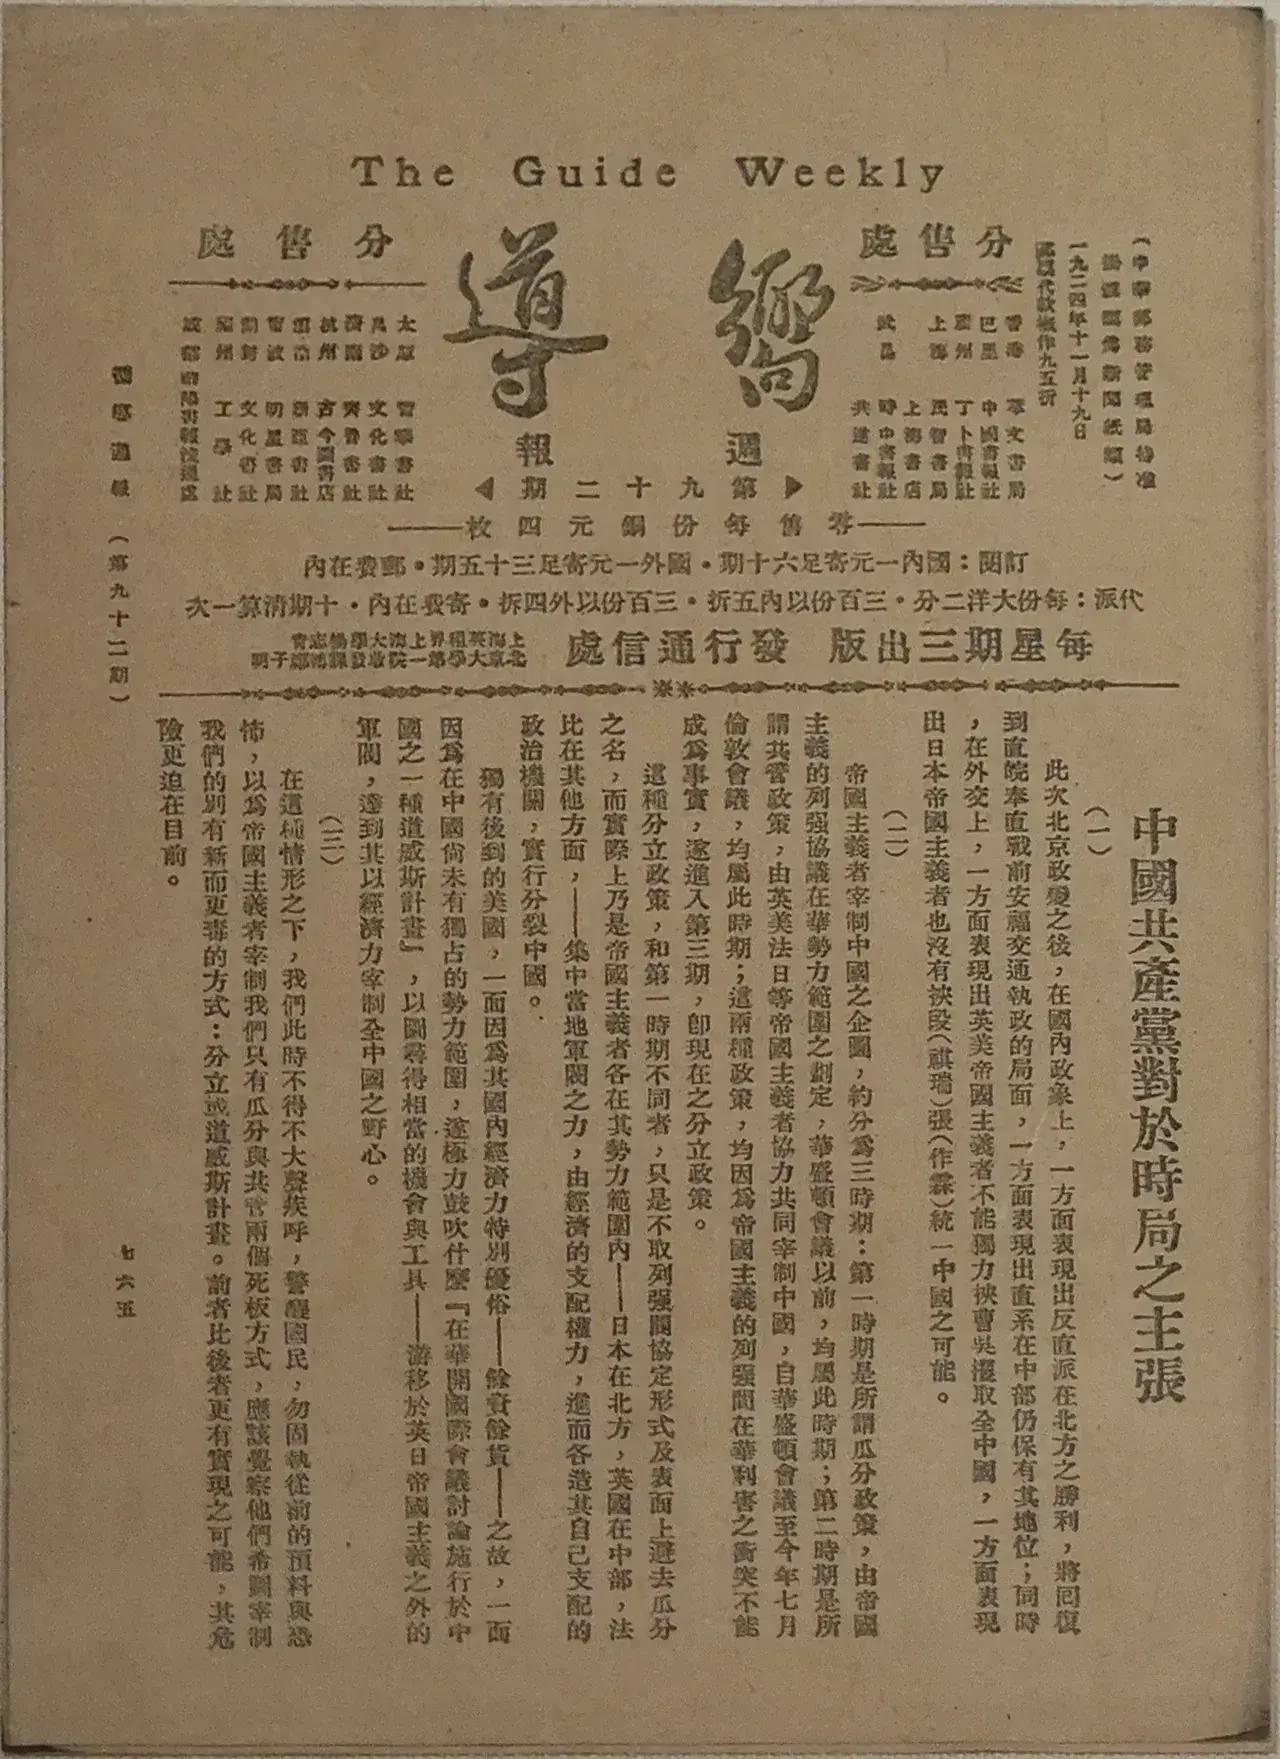 The Guide Weekly
（中華郵務管理局特准
掛號認為新聞紙類）
一九二四年十一月十九日
郵票代款概作九五折
分售處
香港 萃文書局
巴黎 中國書報社
廣州 丁卜書報社
民智書局
上海 上海書店
時中書報社
武昌 共進書社
嚮導
週報
第九十二期
分售處
太原 晉華書社
長沙 文化書社
濟南 齊魯書社
杭州 古今圖書店
明星書局
文化書社
福州 工學社
成都 書報流通處
零售每份銅元四枚
訂閱：國內一元寄足六十期・國外一元寄足三十五期・郵費在內
代派：每份大洋二分・三百份以內五折・三百份以外四折・寄費在內・十期清算一次
每星期三出版 發行通信處
上海英租界上海大學楊志青
北京大學第一院收發課鄭子明
中國共產黨對於時局之主張
（一）
此次北京政變之後，在國內政象上，一方面表現出反直派在北方之勝利，將回復
到直皖奉直戰前安福交通執政的局面，一方面表現出直系在中部仍保有其地位；同時
，在外交上，一方面表現出英美帝國主義者不能獨力挾曹吳獲取全中國，一方面表現
出日本帝國主義者也沒有挾段（祺瑞）張（作霖）統一中國之可能。
（二）
帝國主義者宰制中國之企圖，約分為三時期：第一時期是所謂瓜分政策，由帝國
主義的列强協議在華勢力範圍之劃定，華盛頓會議以前，均屬此時期；第二時期是所
謂共管政策，由英美法日等帝國主義者協力共同宰制中國，自華盛頓會議至今年七月
倫敦會議，均屬此時期；這兩種政策，均因為帝國主義的列强間在華利害之衝突不能
成為事實，遂進入第三期，即現在之分立政策。
這種分立政策，和第一時期不同者，只是不取列强間協定形式及表面上避去瓜分
之名，而實際上乃是帝國主義者各在其勢力範圍內——日本在北方，英國在中部，法
比在其他方面，——集中當地軍閥之力，由經濟的支配權力，進而各造其自己支配的
政治機關，實行分裂中國。
獨有後到的美國，一面因為其國內經濟力特別優裕——餘資餘貨——之故，一面
因為在中國尚未有獨占的勢力範圍，遂極力鼓吹什麼『在華開國際會議討論施行於中
國之一種道威斯計畫』，以圖尋得相當的機會與工具——游移於英日帝國主義之外的
軍閥，達到其以經濟力宰制全中國之野心。
（三）
在這種情形之下，我們此時不得不大聲疾呼，警醒國民，勿固執從前的預料與恐
怖，以為帝國主義者宰制我們只有瓜分與共管兩個死板方式，應該覺察他們希圖宰制
我們的別有新而更毒的方式：分立或道威斯計畫。前者比後者更有實現之可能，其危
險更迫在目前。
嚮導週報 （第九十二期）
七六五